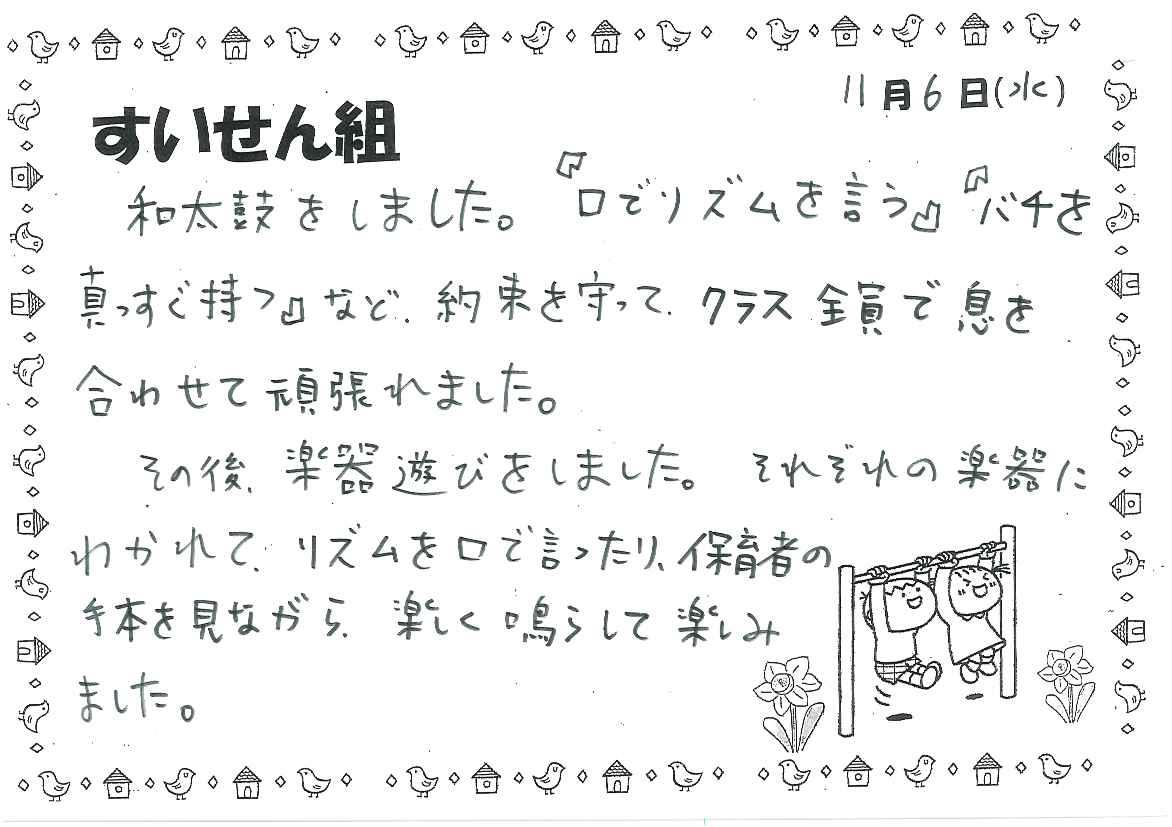 11月6日(水)
すいせん組
和太鼓をしました。『口でリズムを言う』『バチを
真っすぐ持つ』など、約束を守って、クラス全員で息を
合わせて頑張れました。
その後、楽器遊びをしました。それぞれの楽器に
わかれて、リズムを口で言ったり、保育者の
手本を見ながら、楽しく鳴らして楽しみ
ました。